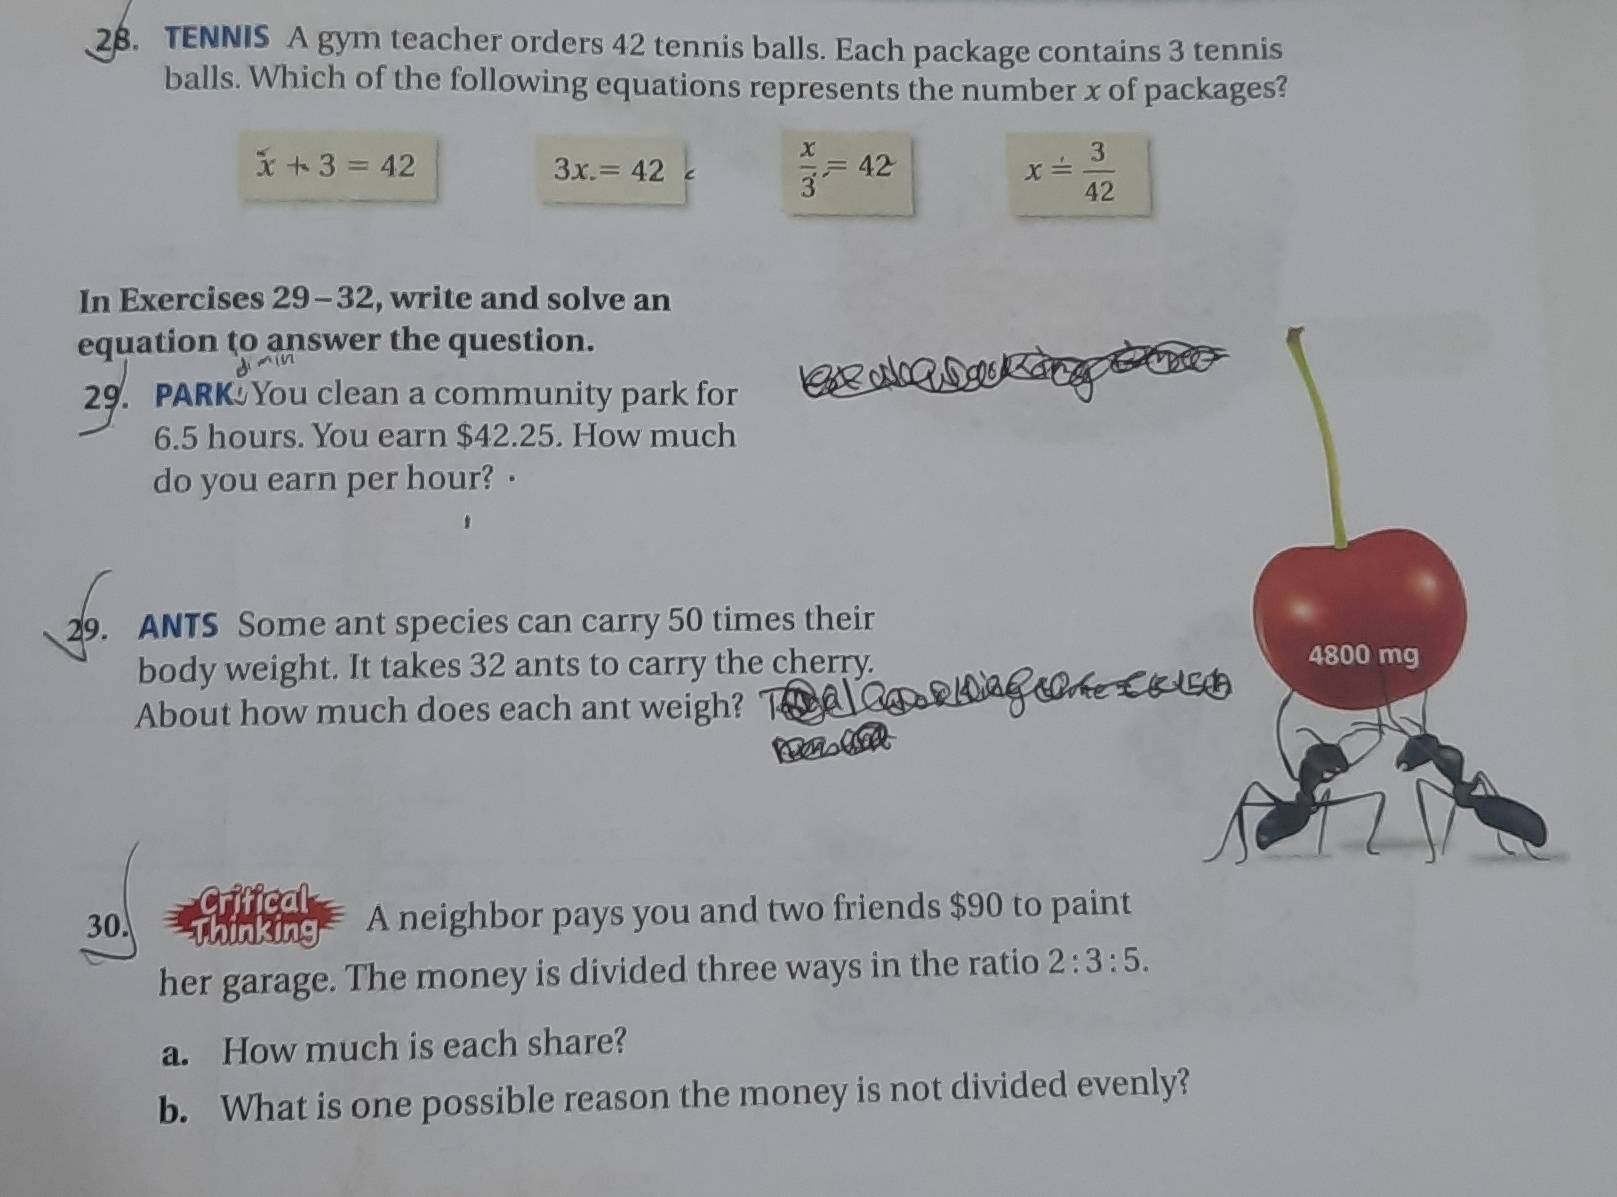 28. TENNIS A gym teacher orders 42 tennis balls. Each package contains 3 tennis
balls. Which of the following equations represents the number x of packages?
x + 3 = 42
3x = 42
x/3 = 42
x = 3/42
In Exercises 29–32, write and solve an
equation to answer the question.
29. PARK You clean a community park for
6.5 hours. You earn $42.25. How much
do you earn per hour?
29. ANTS Some ant species can carry 50 times their
body weight. It takes 32 ants to carry the cherry.
About how much does each ant weigh?
4800 mg
30. Critical Thinking A neighbor pays you and two friends $90 to paint
her garage. The money is divided three ways in the ratio 2:3:5.
a. How much is each share?
b. What is one possible reason the money is not divided evenly?